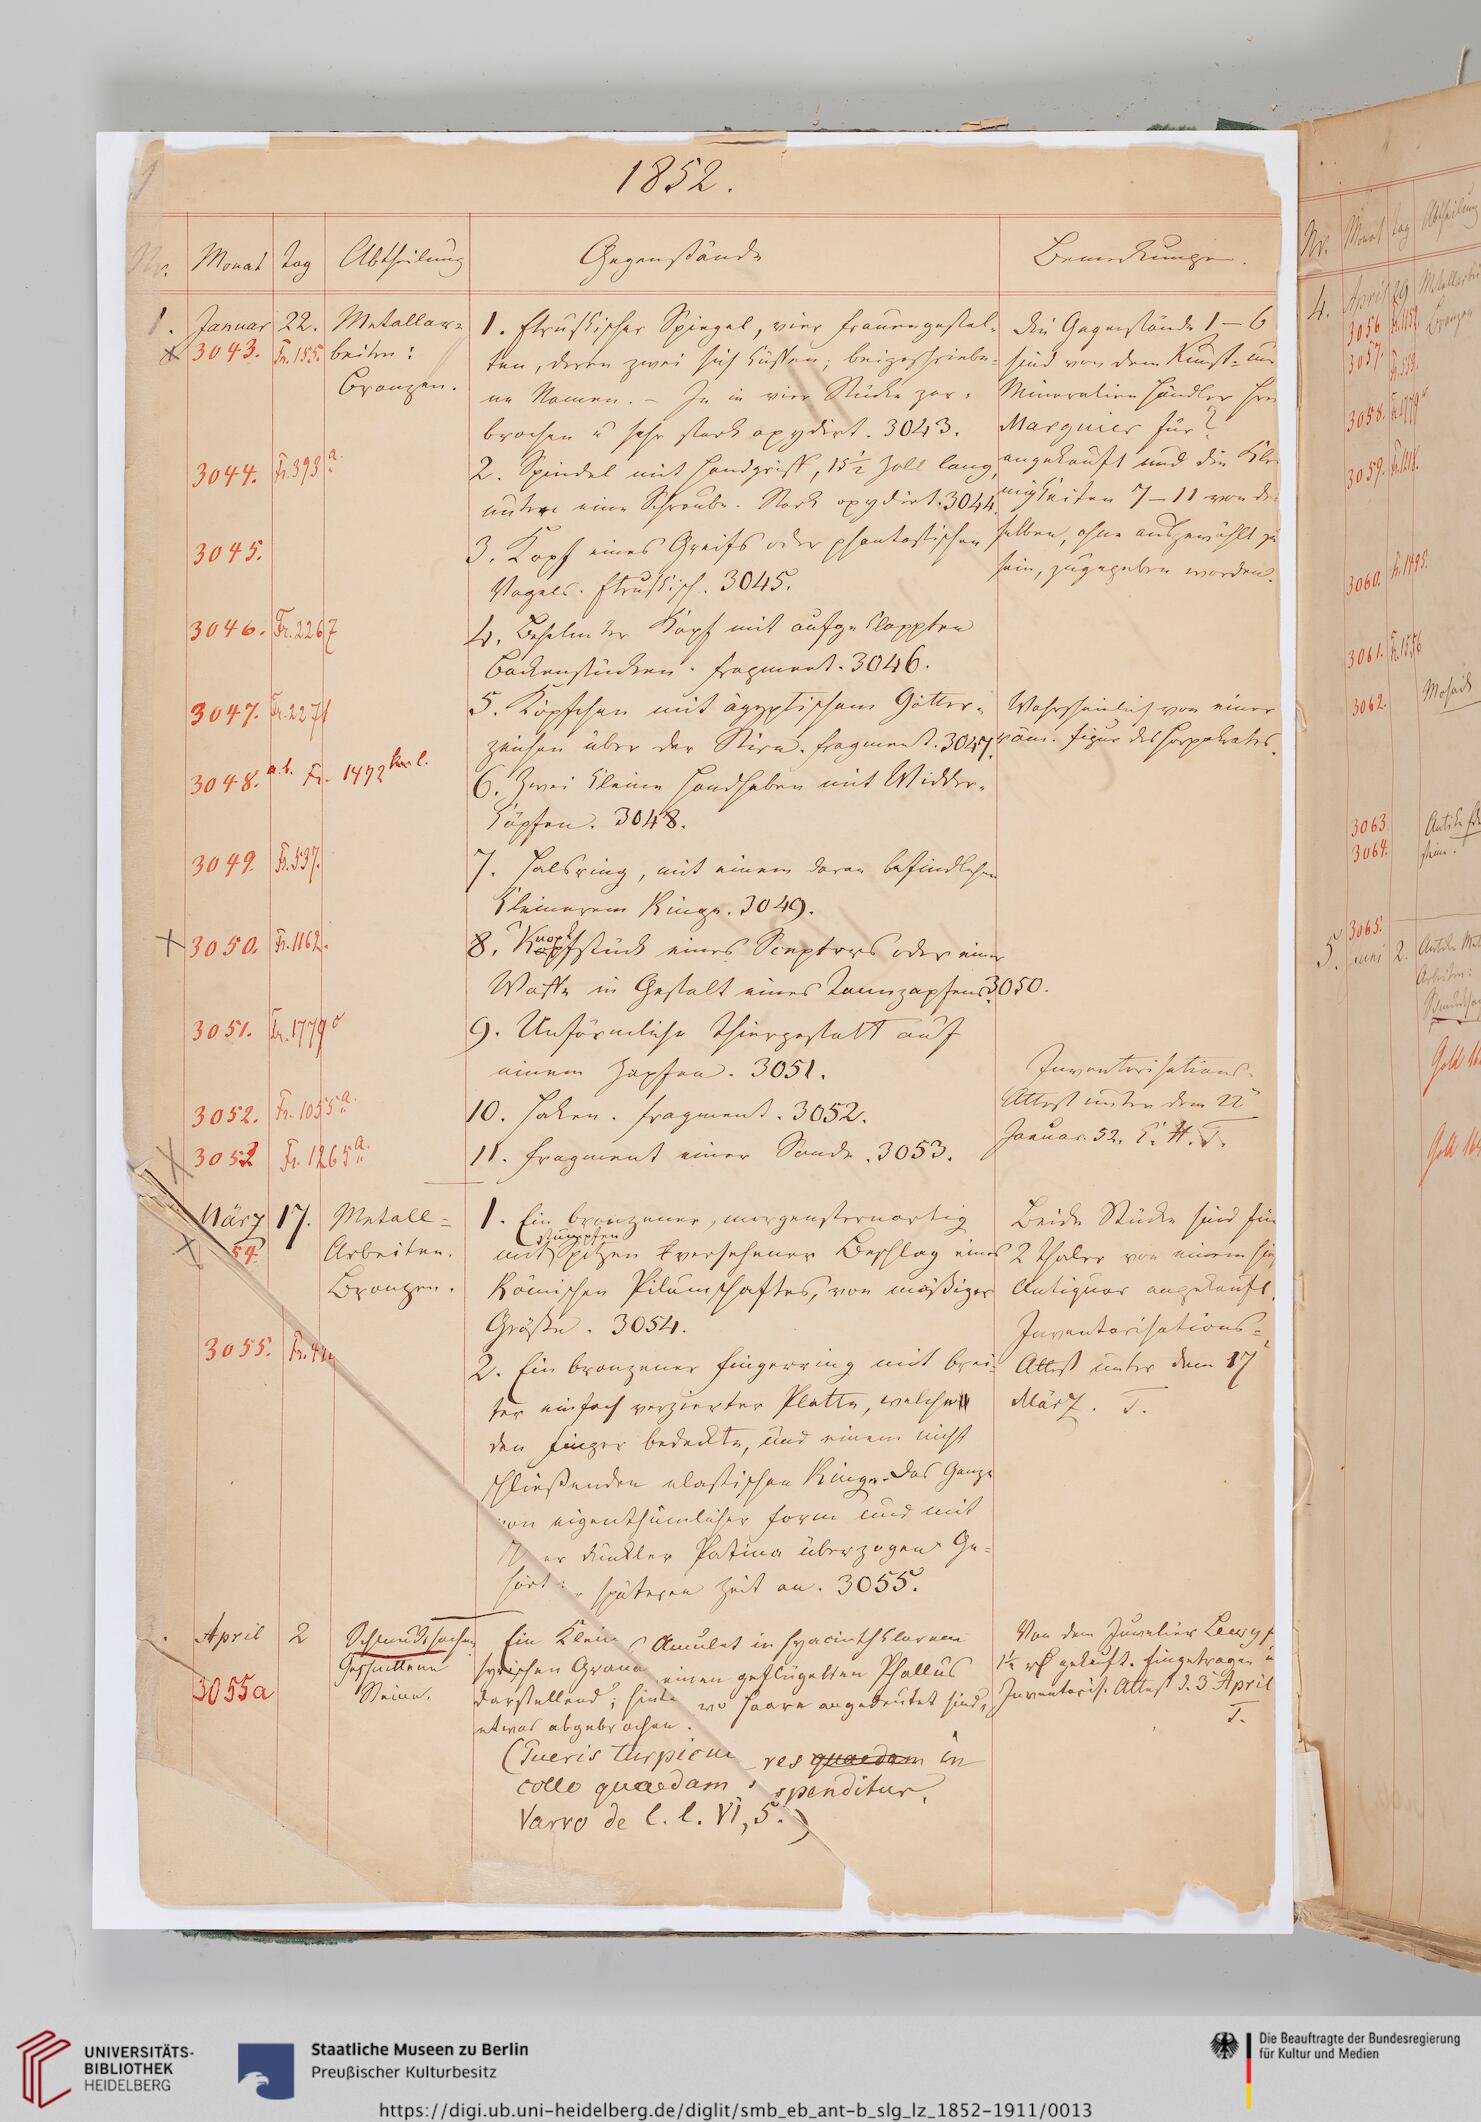 1852.
Nr. Monat Tag Abtheilung Gegenstände Bemerkungen.
1. Januar 22. Metallar=
beiten:
Bronzen.
3043. Fr. 155.
1. Etruskischer Spiegel, vier Frauengestal-
ten, deren zwei sich küssen; beigeschriebe-
ne Namen. – In vier Stücke zer-
brochen u sehr stark oxydirt. 3043.
3044. Fr. 393 a.
2. Spindel mit Handgriff, 15½ Zoll lang,
unten eine Schraube. Stark oxydirt. 3044.
3045.
3. Kopf eines Greifs oder phantastischen
Vogels. Etruskisch. 3045.
3046. Fr. 2267
4. Behelmter Kopf mit aufgeklappten
Backenstücken. Fragment. 3046.
3047. Fr. 2271
5. Köpfchen mit ägyptischem Götter-
zeichen über der Stirn. Fragment. 3047.
3048. a.b. Fr. 1472
6. Zwei kleine Handhaben mit Widder-
köpfen. 3048.
3049. Fr. 537.
7. Halsring, mit einem daran befindlichen
kleineren Ringe. 3049.
3050. Fr. 1162.
8. Knopfstück eines Scepters oder einer
Waffe in Gestalt eines Tannzapfens. 3050.
3051. Fr. 1779
9. Unförmliche Thiergestalt auf
einem Zapfen. 3051.
3052. Fr. 1055 a.
10. Haken. Fragment. 3052.
3053 Fr. 1265 a.
11. Fragment einer Sonde. 3053.
Die Gegenstände 1–6
sind von dem Kunst- und
Mineralien Händler
Marguier für?
angekauft und die Klei
nigkeiten 7–11 von dem
selben, ohne ausgewählt zu
sein, zugegeben worden.
Wahrscheinlich von einer
röm. Figur des Harpokrates.
Inventarisations-
Attest unter dem 22
Januar. 52. T.
März 17. Metall=
Arbeiten.
Bronzen.
54.
1. Ein bronzener, morgensternartig
mit stumpfen Spitzen versehener Beschlag eines
Römischen Pilumschaftes, von mäßiger
Größe. 3054.
3055. Fr.
2. Ein bronzener Fingerring mit brei-
ter einfach verzierter Platte, welche
den Finger bedeckte, und einem nicht
schließenden elastischen Ringe. Das Ganze
von eigenthümlicher Form und mit
dunkler Patina überzogen. Ge-
hört späteren Zeit an. 3055.
Beide Stücke sind für
2 Thaler von einem
Antiquar angekauft.
Inventarisations-
Attest unter dem 17
März. T.
3. April 2 Schmucksachen
Geschnittene
Steine.
3055a
Ein Klein Amulet in hyacinthklarem
syrischen Grana einen geflügelten Phallus
darstellend; hint wo Haare angedeutet sind,
etwas abgebrochen.
(Pueris turpicu res quaedam in
collo quaedam spenditur,
Varro de l. l. VI, 5.)
Von dem Juwelier Lewy f
1½ gekauft. Eingetragen
Inventaris. Attest d. 3 April
T.
Nr. Monat Tag Abtheilung
4. April 29 Metallarbei
Bronzen
3056 Fr. 1152.
3057. Fr. 539.
3058. Fr. 1779
3059. Fr. 1218.
3060. Fr. 1495.
3061. Fr. 1556
3062. Mosaik
3063 Antike
3064.
3065.
5. Juni 2. Antike Met
Arbeiten:
Schmucksa
Gold
Gold
UNIVERSITÄTS-
BIBLIOTHEK
HEIDELBERG
Staatliche Museen zu Berlin
Preußischer Kulturbesitz
Die Beauftragte der Bundesregierung
für Kultur und Medien
https://digi.ub.uni-heidelberg.de/diglit/smb_eb_ant-b_slg_lz_1852-1911/0013